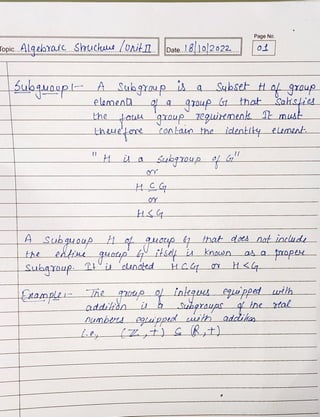 Page No.
Topic Algebraic Structure / Unit II Date 18/10/2022 01
Subgroup :- A Subgroup is a Subset H of group
elements of a group G that Satisfies
the four group requirements. It must
therefore contain the identity element.
"H is a Subgroup of G"
or
H ⊆ G
or
H ≤ G
A Subgroup H of group G that does not include
the entire group G itself is known as a proper
Subgroup. It is denoted H ⊂ G or H < G
Example :- The group of Integers equipped with
addition is a subgroups of the real
numbers equipped with addition
i.e, (Z, +) ⊆ (R, +)